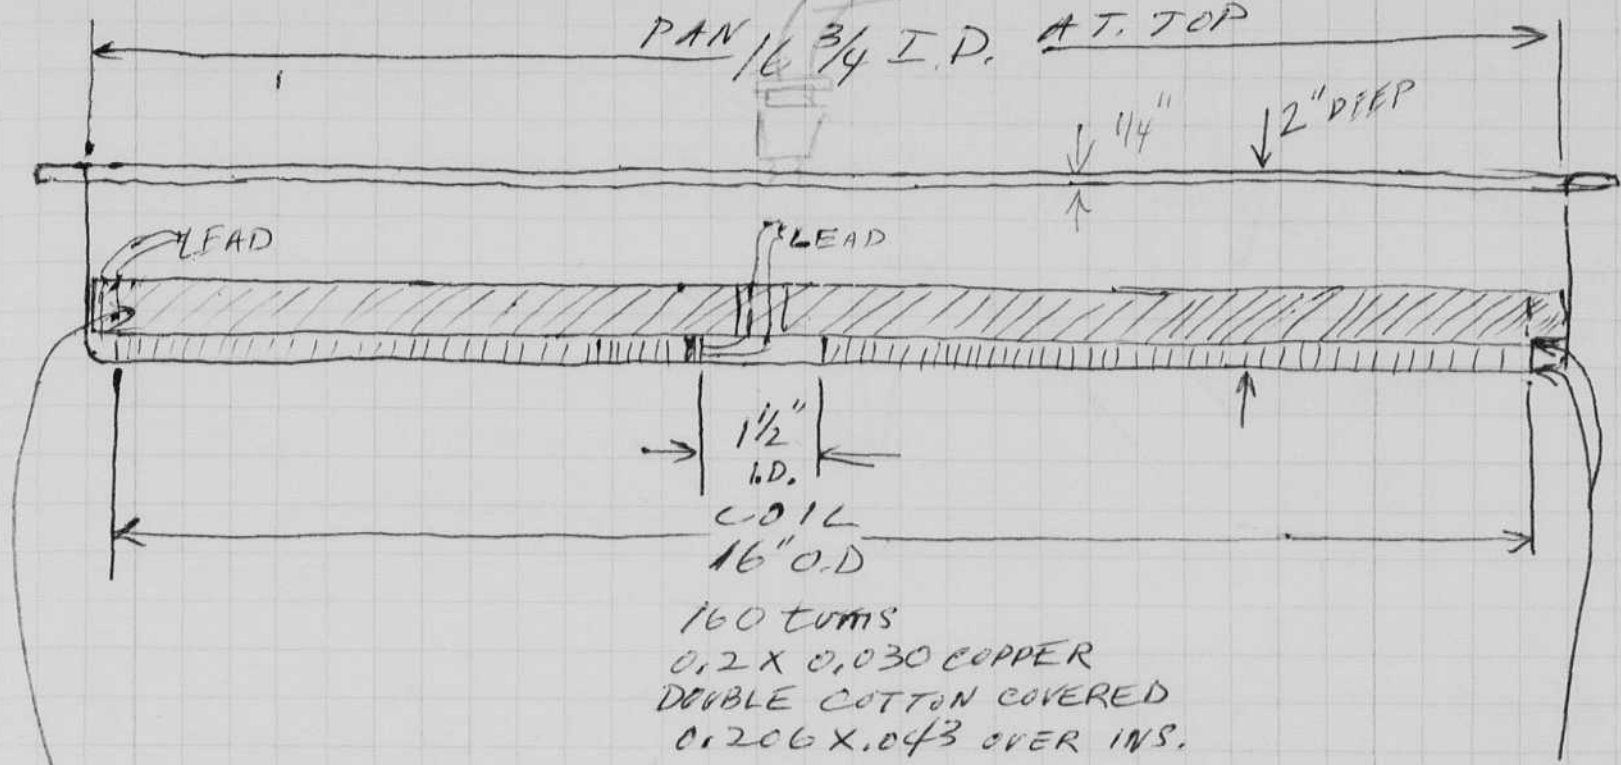 PAN 16 3/4 I.D. AT. TOP
1/4"
2" DEEP
LEAD
LEAD
1 1/2"
I.D.
COIL
16" O.D
160 turns
0.2 X 0.030 COPPER
DOUBLE COTTON COVERED
0.206 X .043 OVER INS.